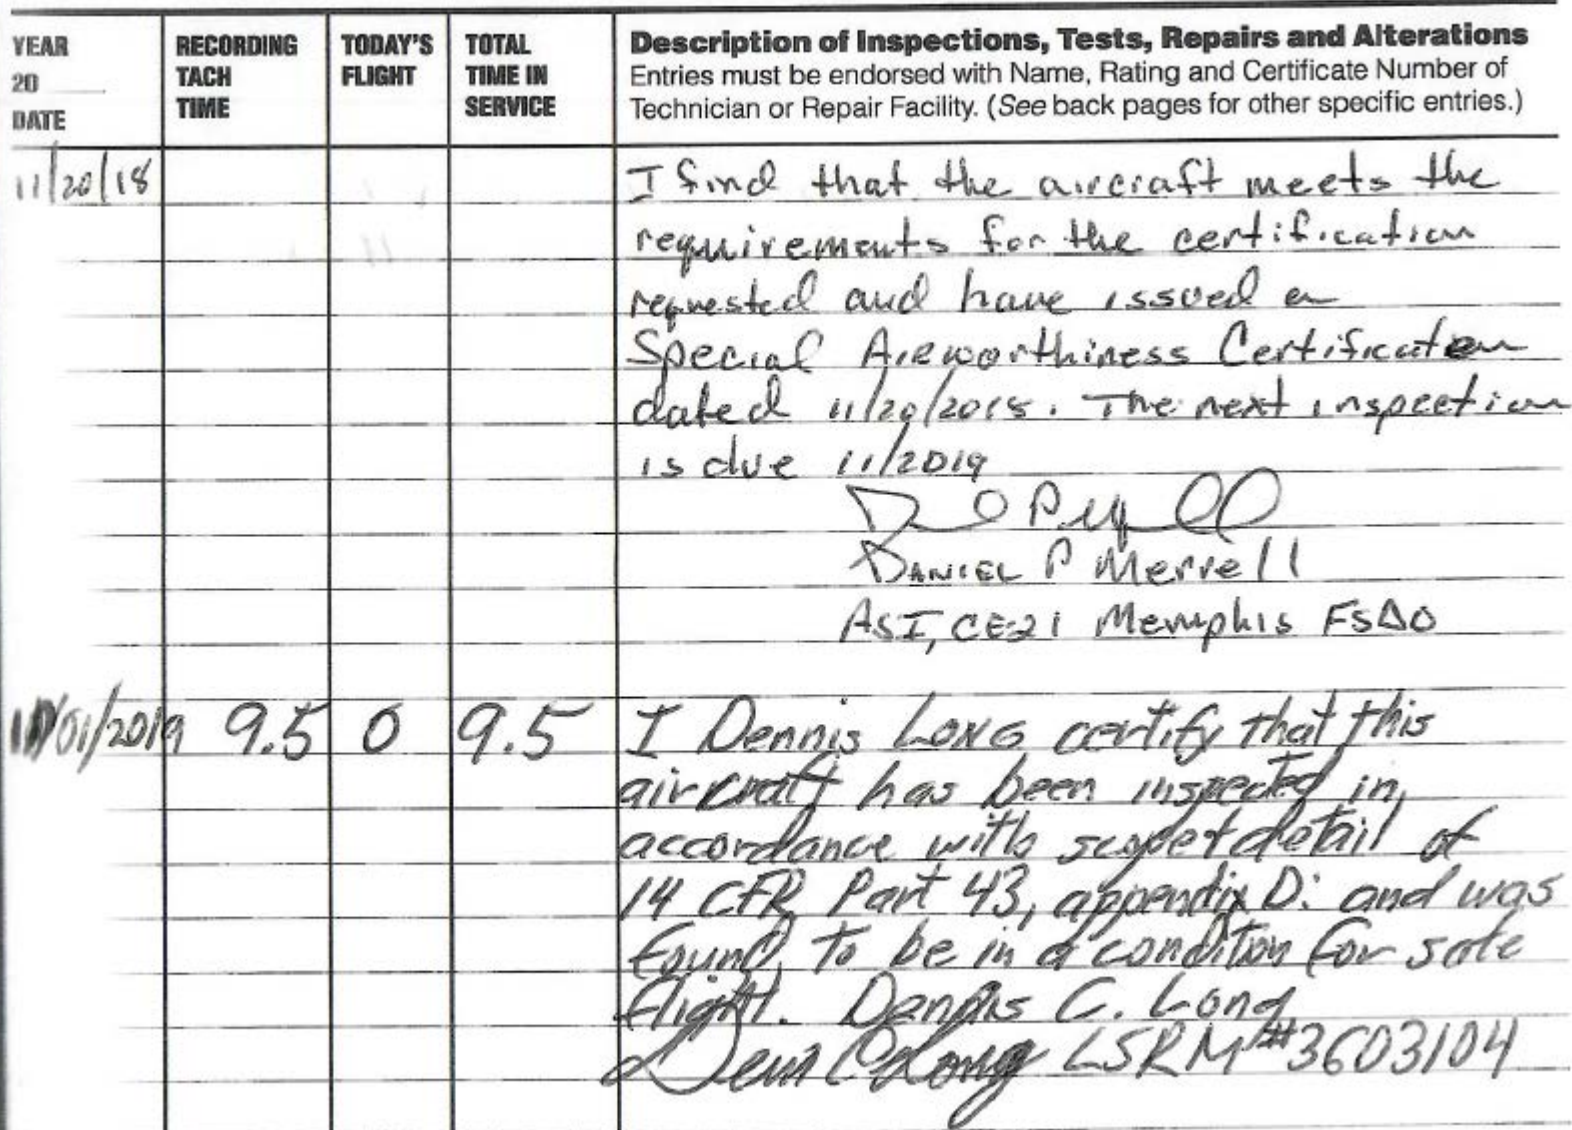 YEAR
20
DATE
RECORDING
TACH
TIME
TODAY'S
FLIGHT
TOTAL
TIME IN
SERVICE
Description of Inspections, Tests, Repairs and Alterations
Entries must be endorsed with Name, Rating and Certificate Number of
Technician or Repair Facility. (See back pages for other specific entries.)
11/20/18
I find that the aircraft meets the
requirements for the certification
requested and have issued a
Special Airworthiness Certification
dated 11/20/2018. The next inspection
is due 11/2019
DANIEL P Merrell
ASI, CE21 Memphis FSDO
/01/2019 9.5 0 9.5 I Dennis LONG certify that this
aircraft has been inspected in
accordance with scope+detail of
14 CFR Part 43, appendix D: and was
found to be in a condition for safe
flight. Dennis C. Long
LSRM #3603104